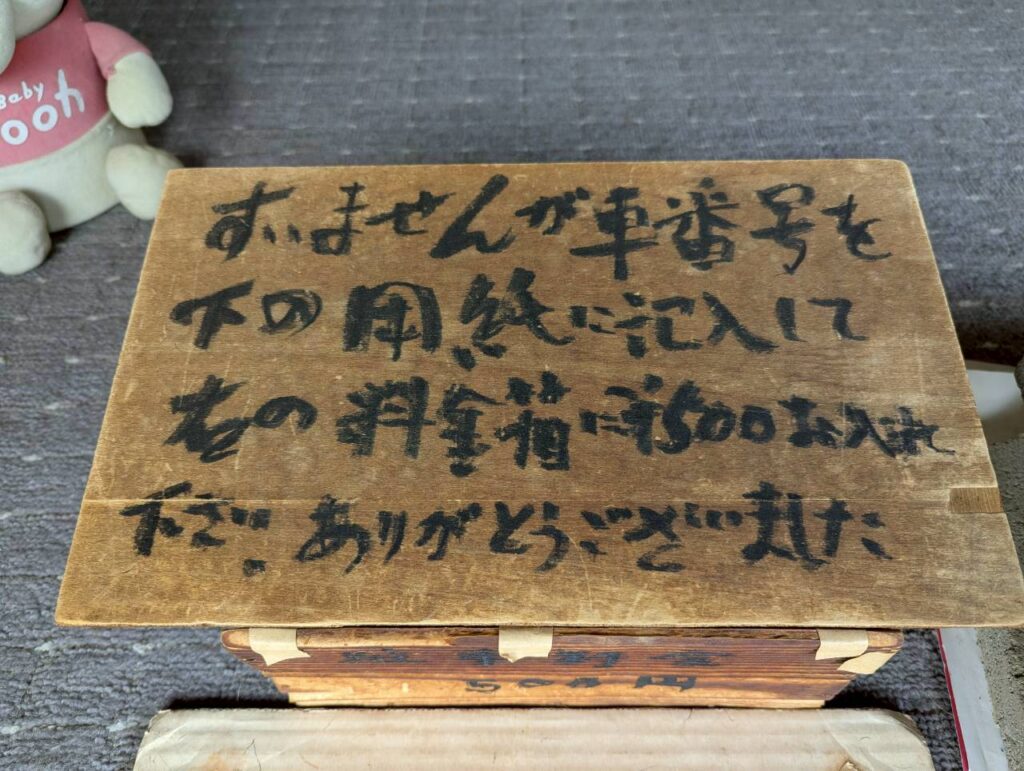 Baby
ooh
すいませんが車番号を
下の用紙に記入して
右の料金箱に¥500お入れ
下さい。ありがとうございました
500円